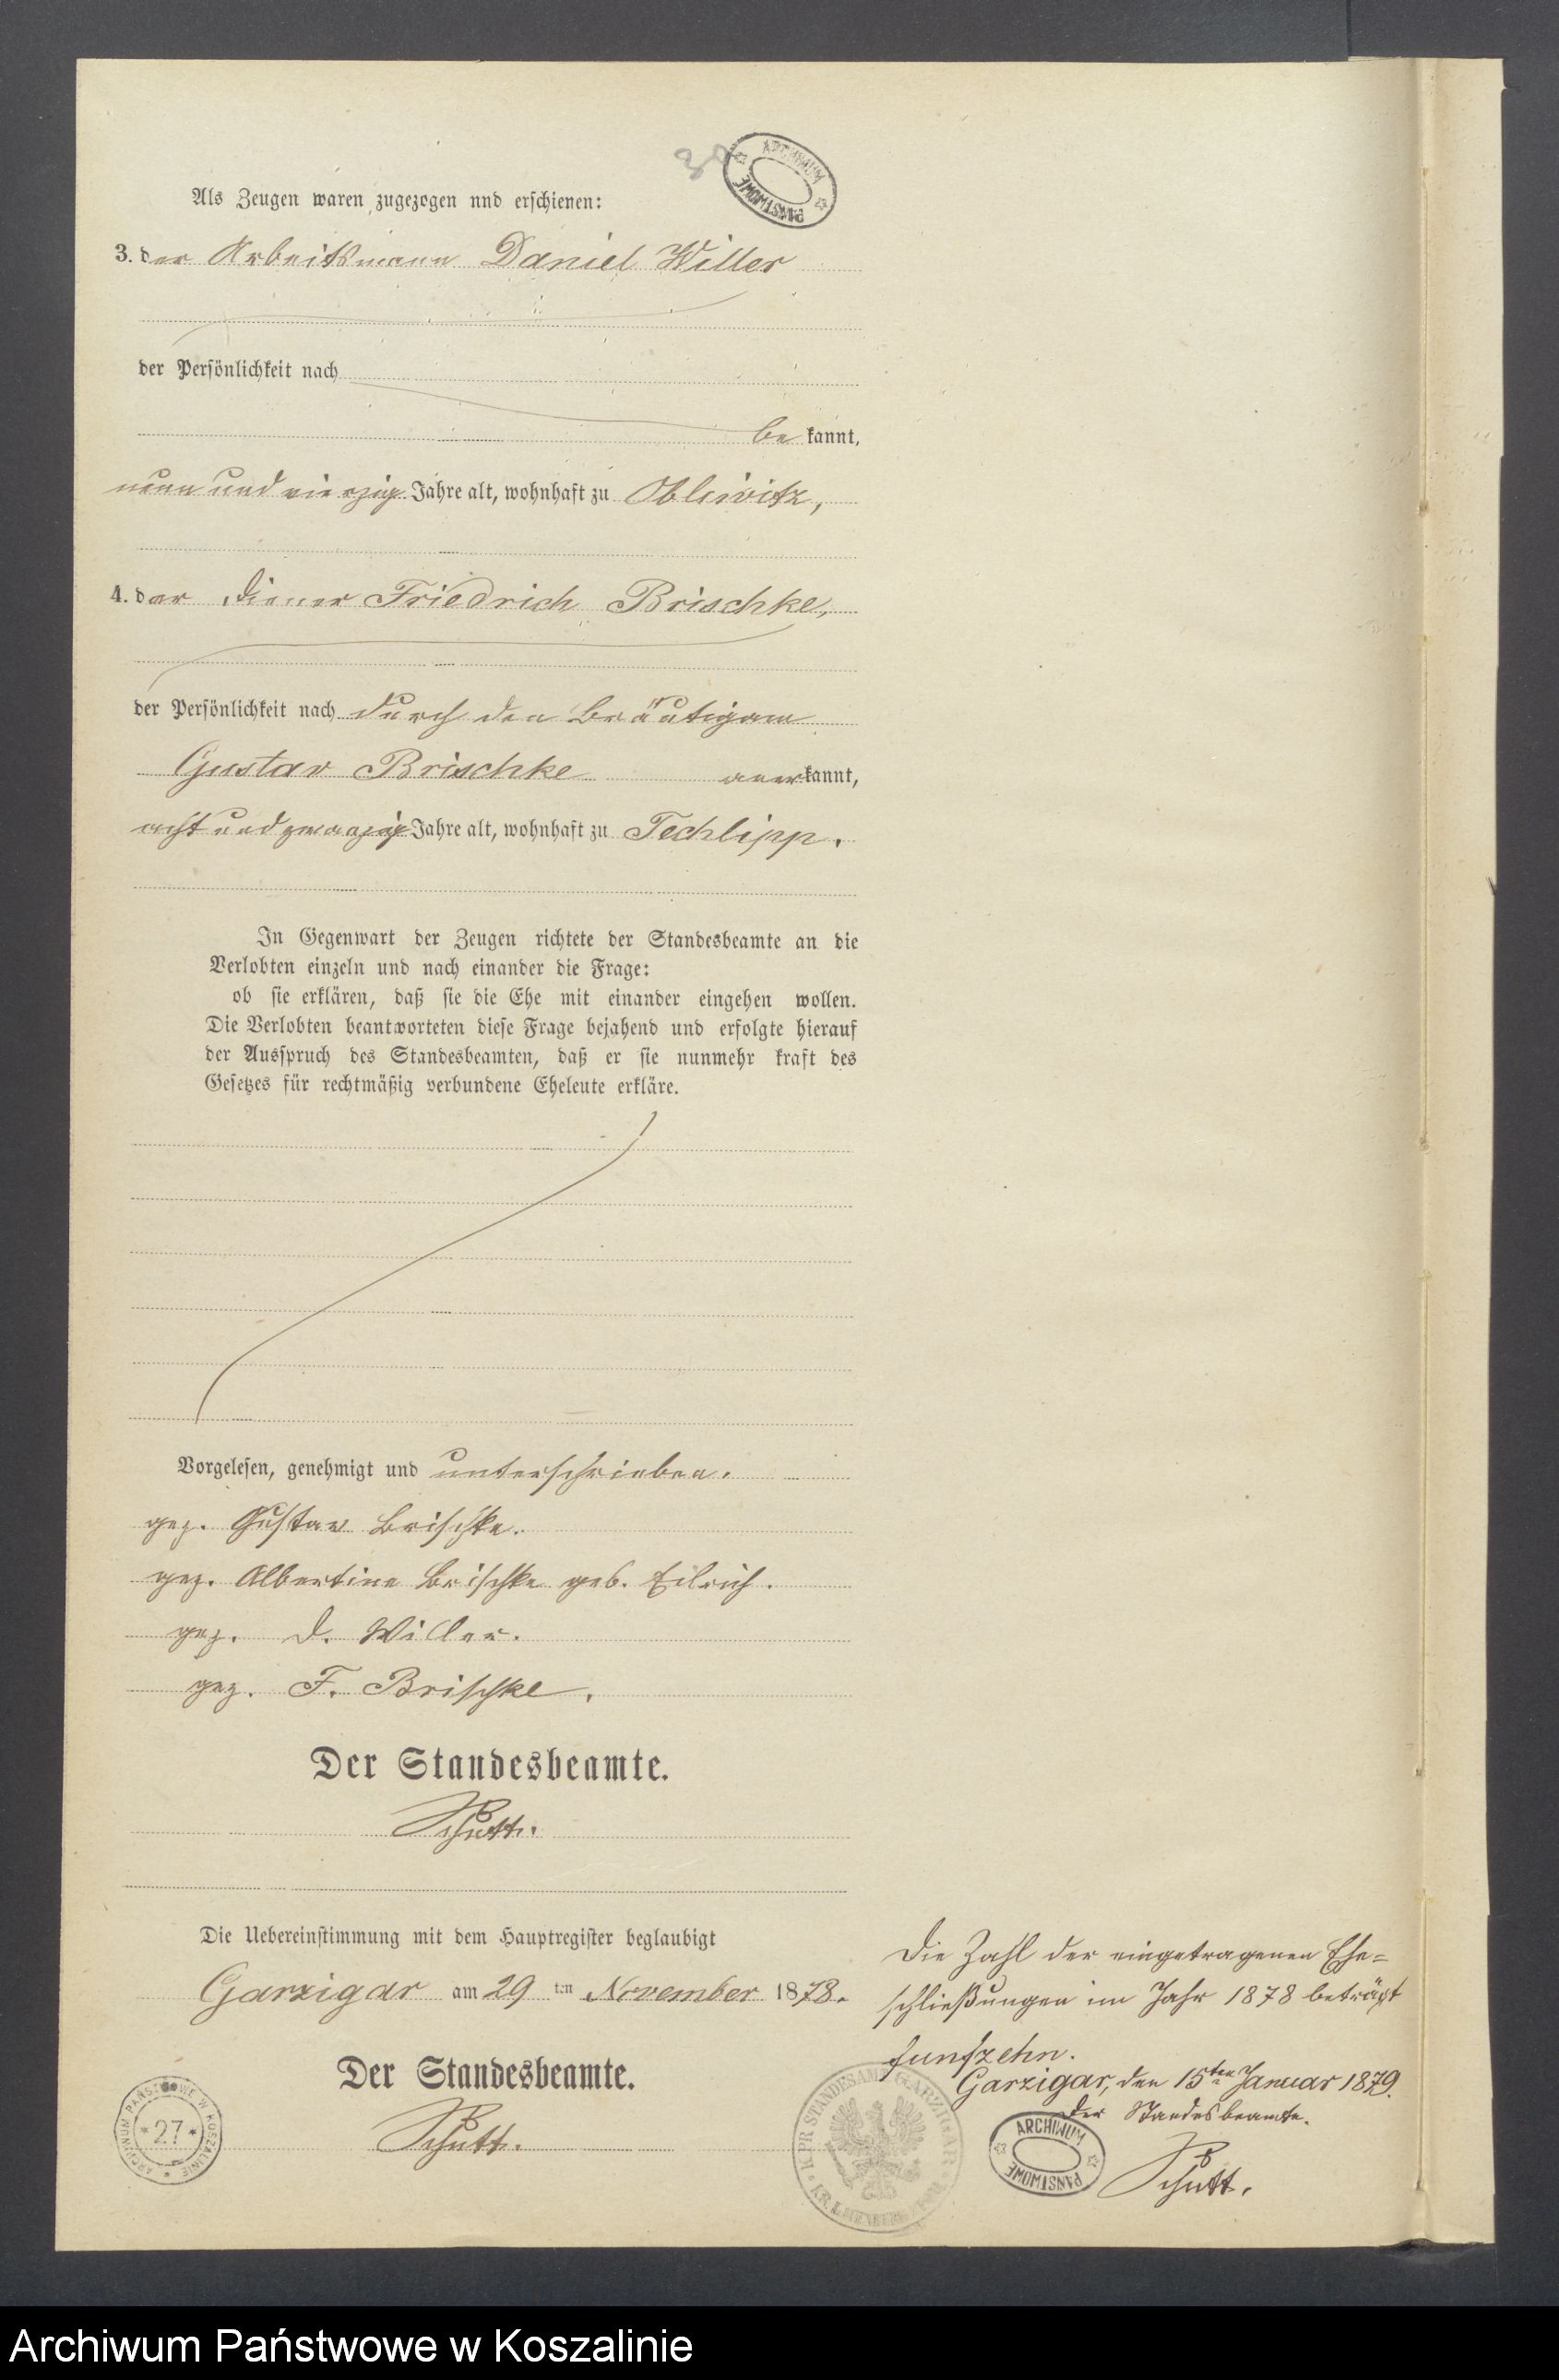 30
ARCHIWUM PAŃSTWOWE
Als Zeugen waren zugezogen nnd erschienen:
3. der Arbeitsmann Daniel Willer
der Persönlichkeit nach
be kannt,
neun und vierzig Jahre alt, wohnhaft zu Obliwitz,
4. der Diener Friedrich Brischke,
der Persönlichkeit nach durch den Bräutigam
Gustav Brischke anerkannt,
acht und zwanzig Jahre alt, wohnhaft zu Techlipp.
In Gegenwart der Zeugen richtete der Standesbeamte an die
Verlobten einzeln und nach einander die Frage:
ob sie erklären, daß sie die Ehe mit einander eingehen wollen.
Die Verlobten beantworteten diese Frage bejahend und erfolgte hierauf
der Ausspruch des Standesbeamten, daß er sie nunmehr kraft des
Gesetzes für rechtmäßig verbundene Eheleute erkläre.
Vorgelesen, genehmigt und unterschrieben.
gez. Gustav Brischke.
gez. Albertine Brischke geb. Eilrich.
gez. D. Willer.
gez. F. Brischke.
Der Standesbeamte.
Schutt.
Die Uebereinstimmung mit dem Hauptregister beglaubigt
Garzigar am 29 ten November 1878.
Der Standesbeamte.
Schutt.
ARCHIWUM PAŃSTWOWE W KOSZALINIE
* 27 *
Die Zahl der eingetragenen Ehe=
schließungen im Jahr 1878 beträgt
funfzehn.
Garzigar, den 15ten Januar 1879.
Der Standesbeamte.
Schutt.
K. PR. STANDESAMT GARZIGAR
ARCHIWUM PAŃSTWOWE
Archiwum Państwowe w Koszalinie